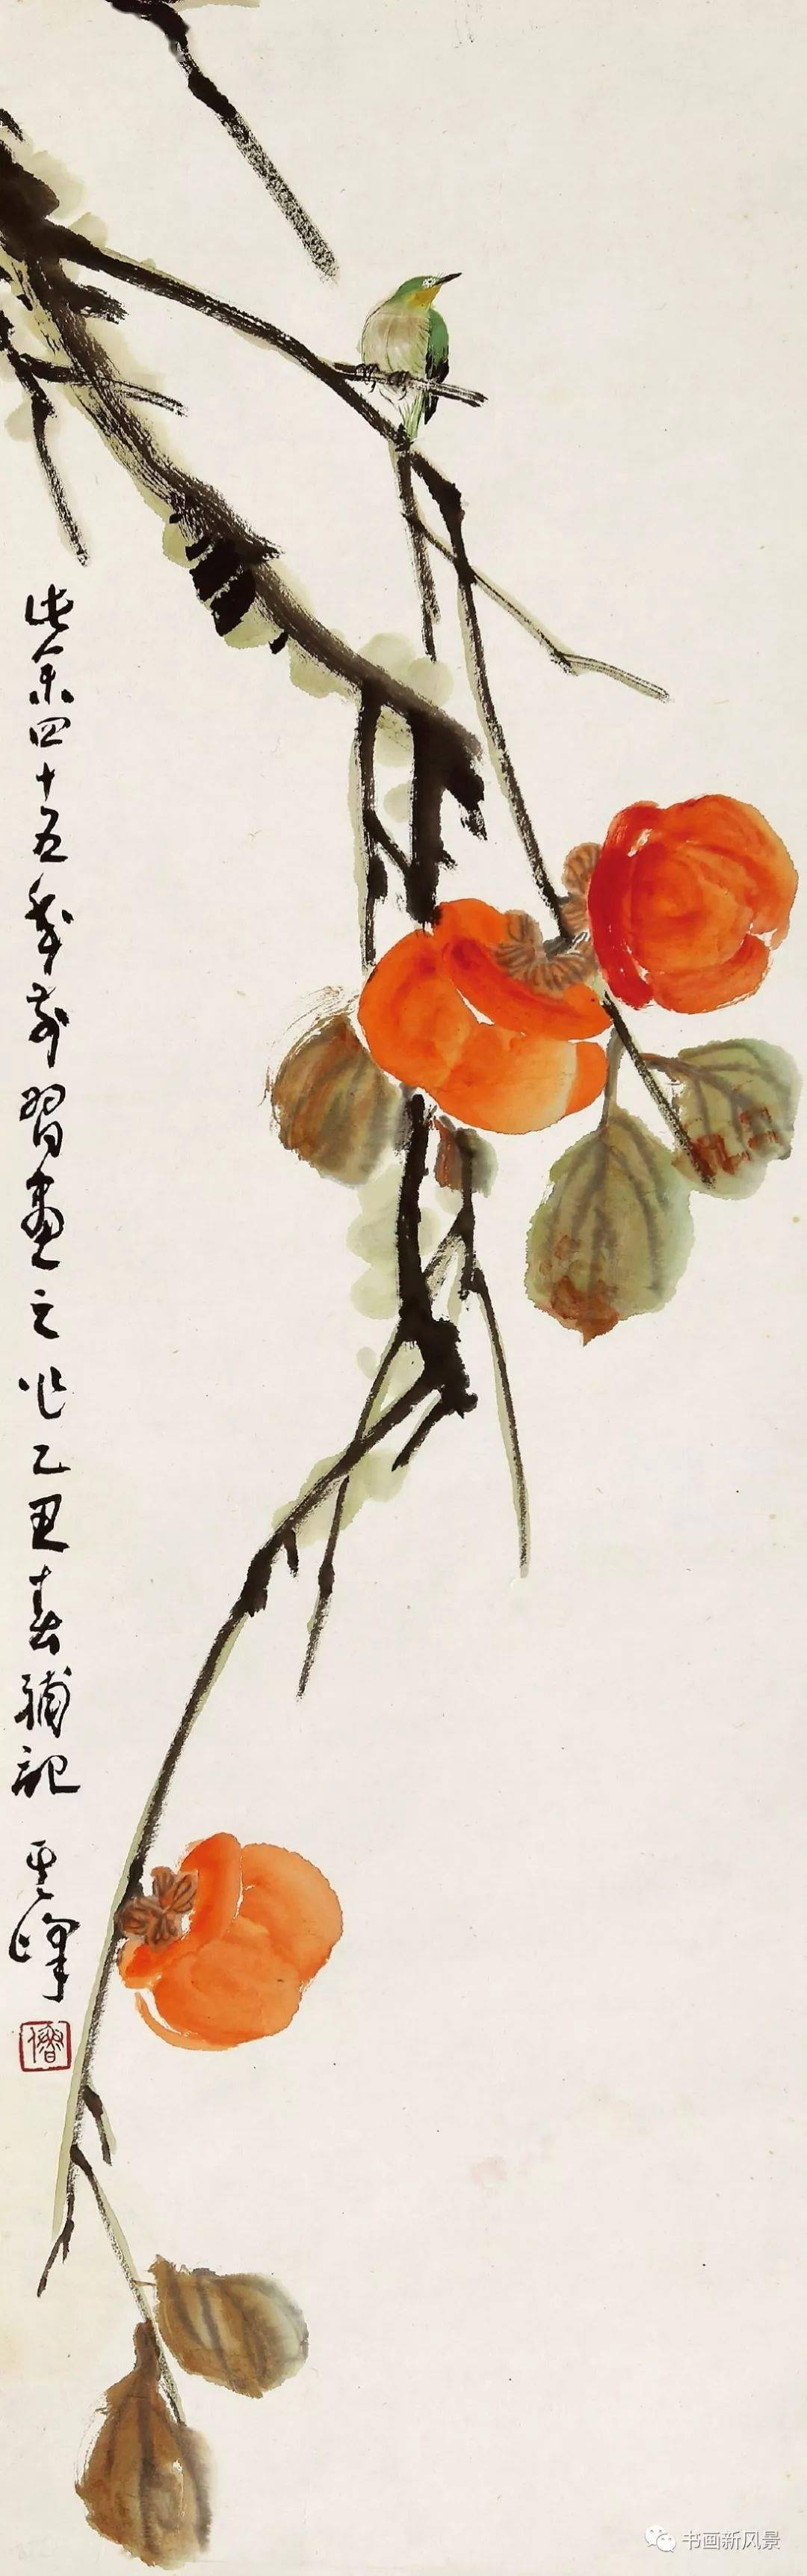 此余四十五年前習畫之作乙丑春補記 其峰
书画新风景